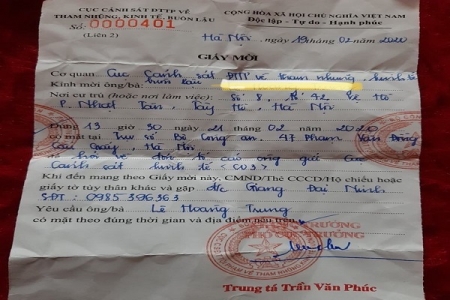 CỤC CẢNH SÁT ĐTTP VỀ
THAM NHŨNG, KINH TẾ, BUÔN LẬU
CỘNG HÒA XÃ HỘI CHỦ NGHĨA VIỆT NAM
Độc lập - Tự do - Hạnh phúc
Số: 0000401
(Liên 2)
Hà Nội, ngày 19 tháng 02 năm 2020
GIẤY MỜI
Cơ quan Cục Cảnh sát ĐTTP về tham nhũng, kinh tế
buôn lậu
Kính mời ông/bà:
Nơi cư trú (hoặc nơi làm việc): Số 8, 42
P. Nhật Tân, Tây Hồ, Hà Nội
Đúng 13 giờ 30 ngày 21 02 2020
có mặt tại Trụ sở Bộ Công an. 47 Phạm Văn Đồng
Cầu Giấy, Hà Nội
hỏi về đơn tố cáo ông gửi Cục
Cảnh sát kinh tế (C03)
Khi đến mang theo Giấy mời này, CMND/Thẻ CCCD/Hộ chiếu hoặc
giấy tờ tùy thân khác và gặp đ/c Giang Đại Minh
SĐT: 0985 396363
Yêu cầu ông/bà Lê Hoàng Trung
có mặt theo đúng thời gian và địa điểm nêu trên.
Trung tá Trần Văn Phúc